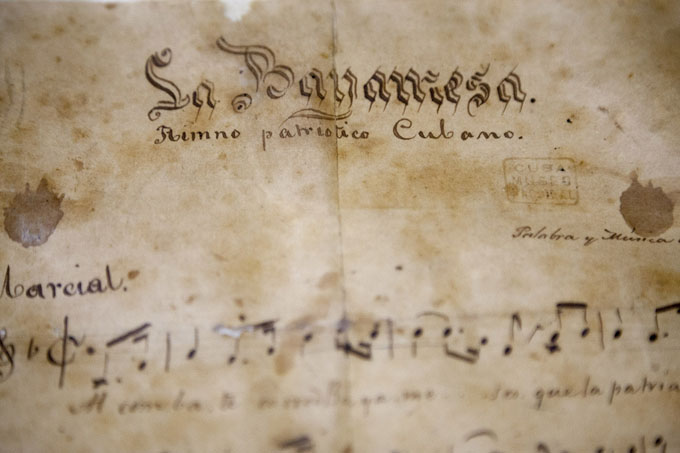 La Bayamesa.
Himno patriotico Cubano.
CUBA
MUSEO
Palabra y Música
Marcial.
Al comba te bayame ses que la patria